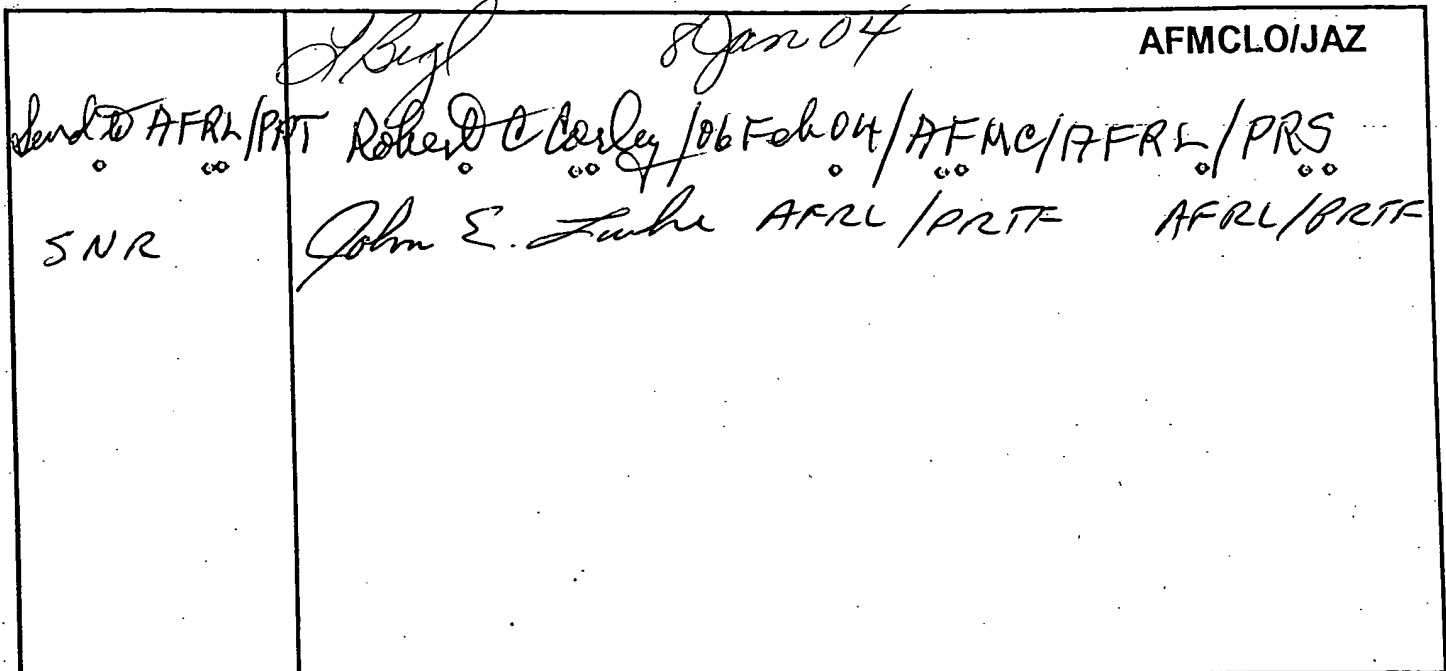 8 Jan 04 AFMCLO/JAZ
Send to AFRL/PRT Robert C Corley /06 Feb 04/AFMC/AFRL/PRS
SNR John E. AFRL/PRTF AFRL/PRTF